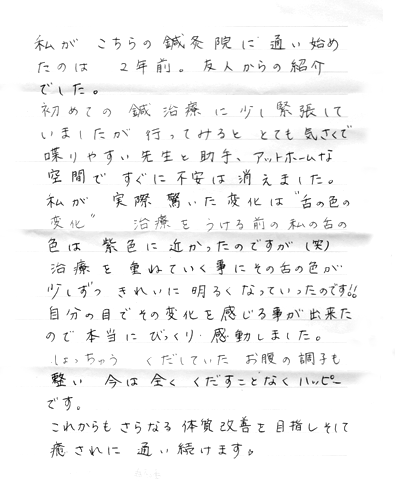 私が こちらの鍼灸院に 通い始め
たのは 2年前。友人からの紹介
でした。
初めての 鍼治療に少し緊張して
いましたが 行ってみると とても気さくで
喋りやすい先生と助手、アットホームな
空間で すぐに不安は消えました。
私が 実際驚いた変化は"舌の色の
変化" 治療を うける前の私の舌の
色は 紫色に近かったのですが(笑)
治療を 重ねていく事にその舌の色が
少しずつ きれいに明るくなっていったのです!!
自分の目でその変化を感じる事が出来た
ので本当に びっくり・感動しました。
しょっちゅう くだしていた お腹の調子も
整い 今は全く くだすことなくハッピー
です。
これからもさらなる 体質改善を目指しそして
癒されに 通い続けます。